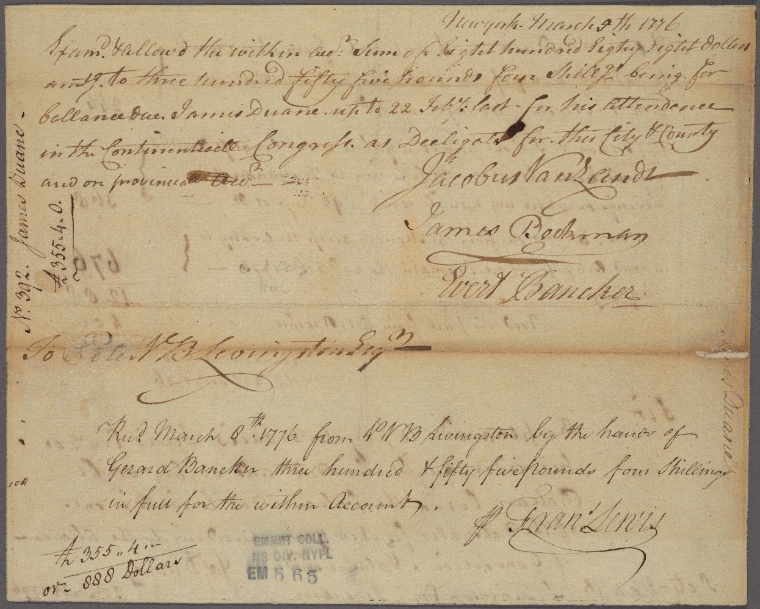 New york March 5th 1776
Examd. & allowed the within acct. Sum of Eight hundred Eighty Eight dollars
and to three hundred fifty five pounds four Shills. being for
ballance due James Duane up to 22 Feby. last for his attendence
in the Continentall Congress. as Deeligate for this City & County
and on provincial Acct.
Jacobus Van Zandt
James Beekman
Evert Bancker
No. 392. James Duane
£355.4.0.
To Petr. V. B. Levingston Esqr.
Recd. March 8th. 1776 from P V B Livingston by the hands of
Gerard Bancker three hundred & fifty five Pounds four Shillings
in full for the within Account.
pr Frans. Lewis
£ 355..4..
or 888 Dollars
EMMET COLL.
MS DIV. NYPL
EM 565
Duane